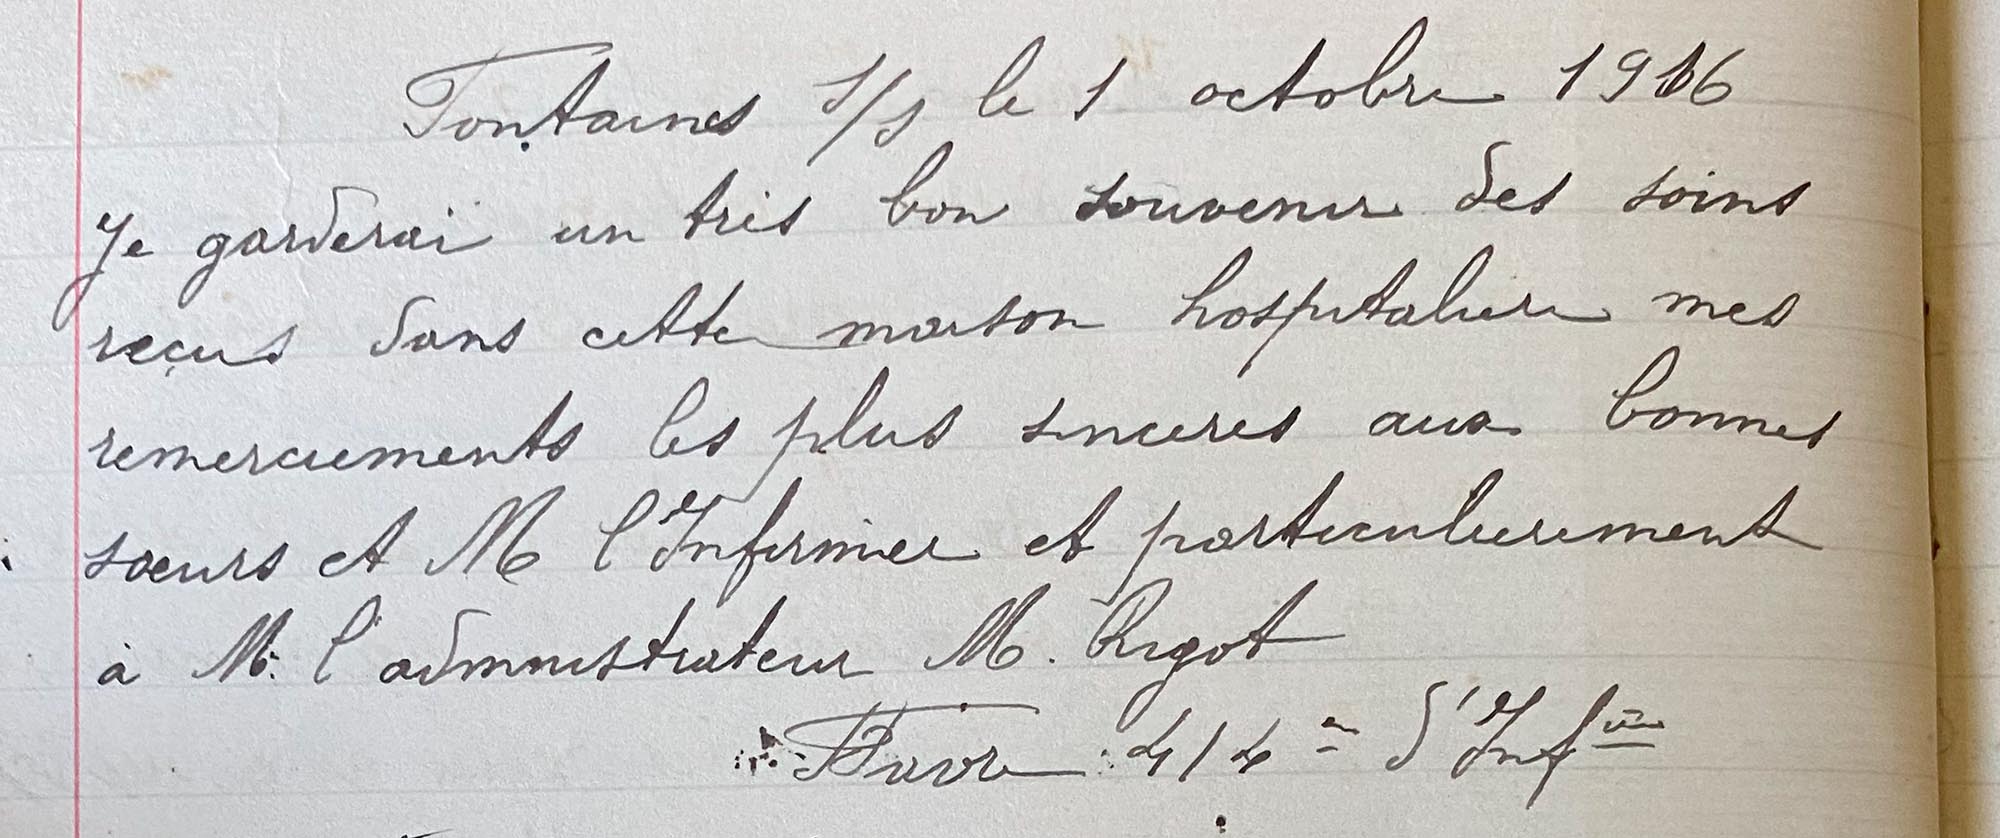 Fontaines s/s le 1 octobre 1916
Je garderai un très bon souvenir des soins
reçus dans cette maison hospitalière mes
remerciements les plus sincères aux bonnes
sœurs et M l'Infirmier et particulièrement
à M. l'administrateur M. Rigot
Favre 414 e d'Infie